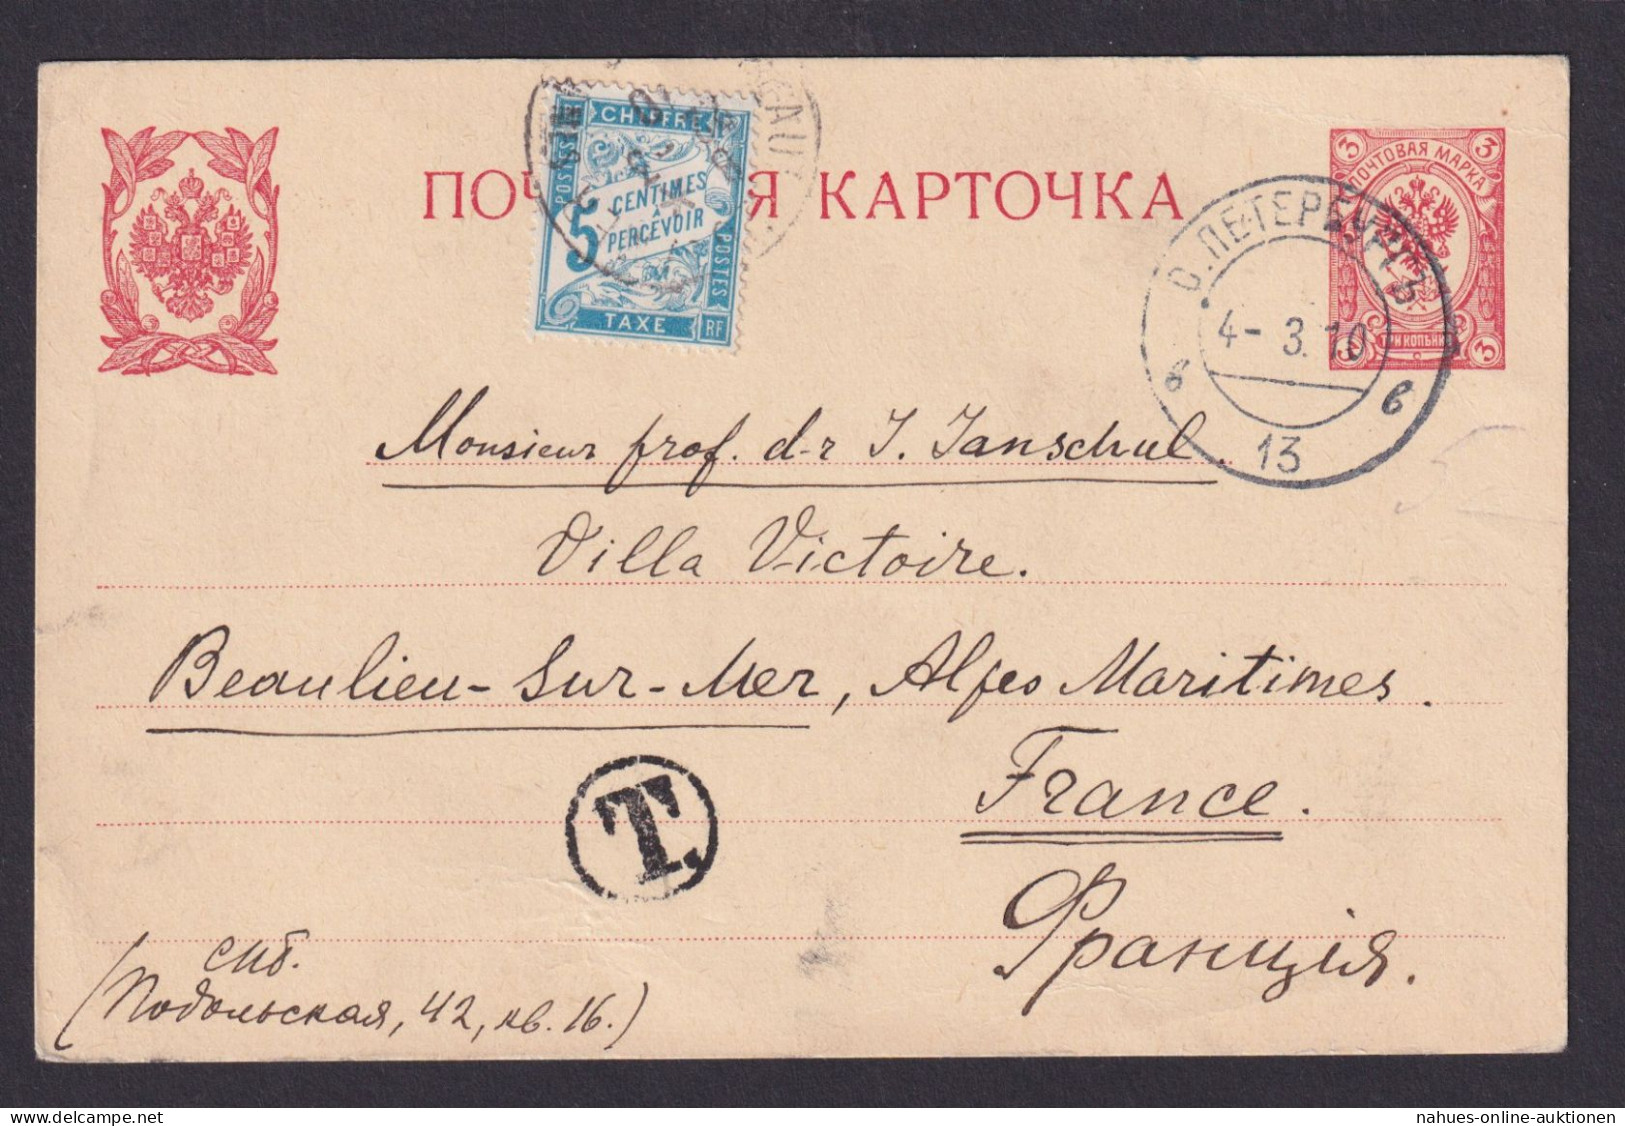 ПОЧ Я КАРТОЧКА
CHIFFRE
POSTES
5 CENTIMES
À
PERCEVOIR
POSTES
TAXE RF
3 3
ПОЧТОВАЯ МАРКА
ТРИ КОПѢЙКИ
3 3
С.ПЕТЕРБУРГЪ
4- 3.10
в в
13
Monsieur prof. d-r I. Ianschul.
Villa Victoire.
Beaulieu-Sur-Mer, Alpes Maritimes.
France.
Франція.
T.
СПб.
(Подольская, 42, кв. 16.)
nahues-e.com
nahues-online-auktionen